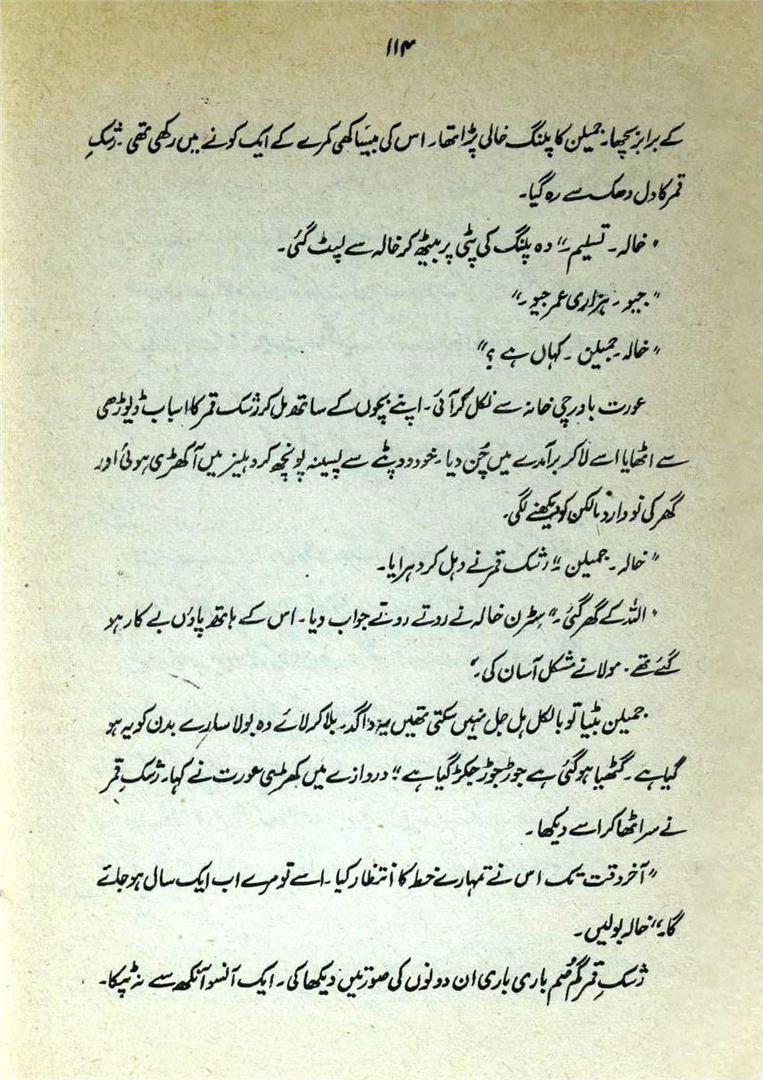 ۱۱۴
کے برابر بچھا۔ جمیلن کا پلنگ خالی پڑا تھا۔ اس کی بیساکھی کمرے کے ایک کونے میں رکھی تھی۔ رشکِ
قمر کا دل دھک سے رہ گیا۔
"خالہ۔ تسلیم۔" وہ پلنگ کی پٹی پر بیٹھ کر خالہ سے لپٹ گئی۔
"جیو۔ ہزاری عمر جیو۔"
"خالہ۔ جمیلن۔ کہاں ہے؟"
عورت باورچی خانہ سے نکل کر آئی۔ اپنے بچوں کے ساتھ مل کر رشک قمر کا اسباب ڈیوڑھی
سے اٹھایا اسے لا کر برآمدے میں چُن دیا۔ خود دوپٹے سے پسینہ پونچھ کر دہلیز میں آ کھڑی ہوئی اور
گھر کی نووارد مالکن کو دیکھنے لگی۔
"خالہ۔ جمیلن۔" رشک قمر نے دہل کر دہرایا۔
"اللہ کے گھر گئی۔" ہٹرن خالہ نے روتے روتے جواب دیا۔ اس کے ہاتھ پاؤں بے کار ہو
گئے تھے۔ مولا نے مشکل آسان کی۔"
جمیلن بٹیا تو بالکل ہل جل نہیں سکتی تھیں بلا کر لائے وہ بولا سارے بدن کو یہ ہو
گیا ہے۔ گٹھیا ہو گئی ہے جوڑ جوڑ جکڑ گیا ہے" دروازے میں کھڑی عورت نے کہا۔ رشکِ قمر
نے سر اٹھا کر اسے دیکھا۔
"آخر وقت تک اس نے تمہارے خط کا انتظار کیا۔ اسے تو مرے اب ایک سال ہو جائے
گا۔" خالہ بولیں۔
رشکِ قمر گم صُم باری باری ان دونوں کی صورتیں دیکھا کی۔ ایک آنسو آنکھ سے نہ ٹپکا۔